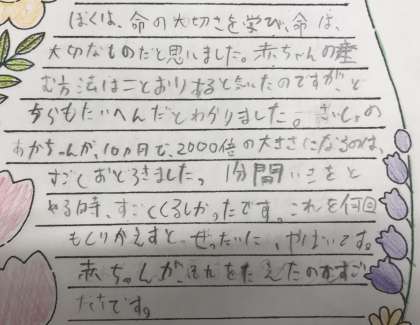 ぼくは、命の大切さを学び、命は、
大切なものだと思いました。赤ちゃんの産
む方法は二とおりあると知ったのですが、ど
ちらもたいへんだとわかりました。さいしょの
あかちゃんが、10ヵ月で、2000倍の大きさになるのは、
すごくおどろきました。1分間いきをと
める時、すごくくるしかったです。これを何回
もくりかえすと、ぜったいに、やばいです。
赤ちゃんが、それをたえたのはすご
いです。